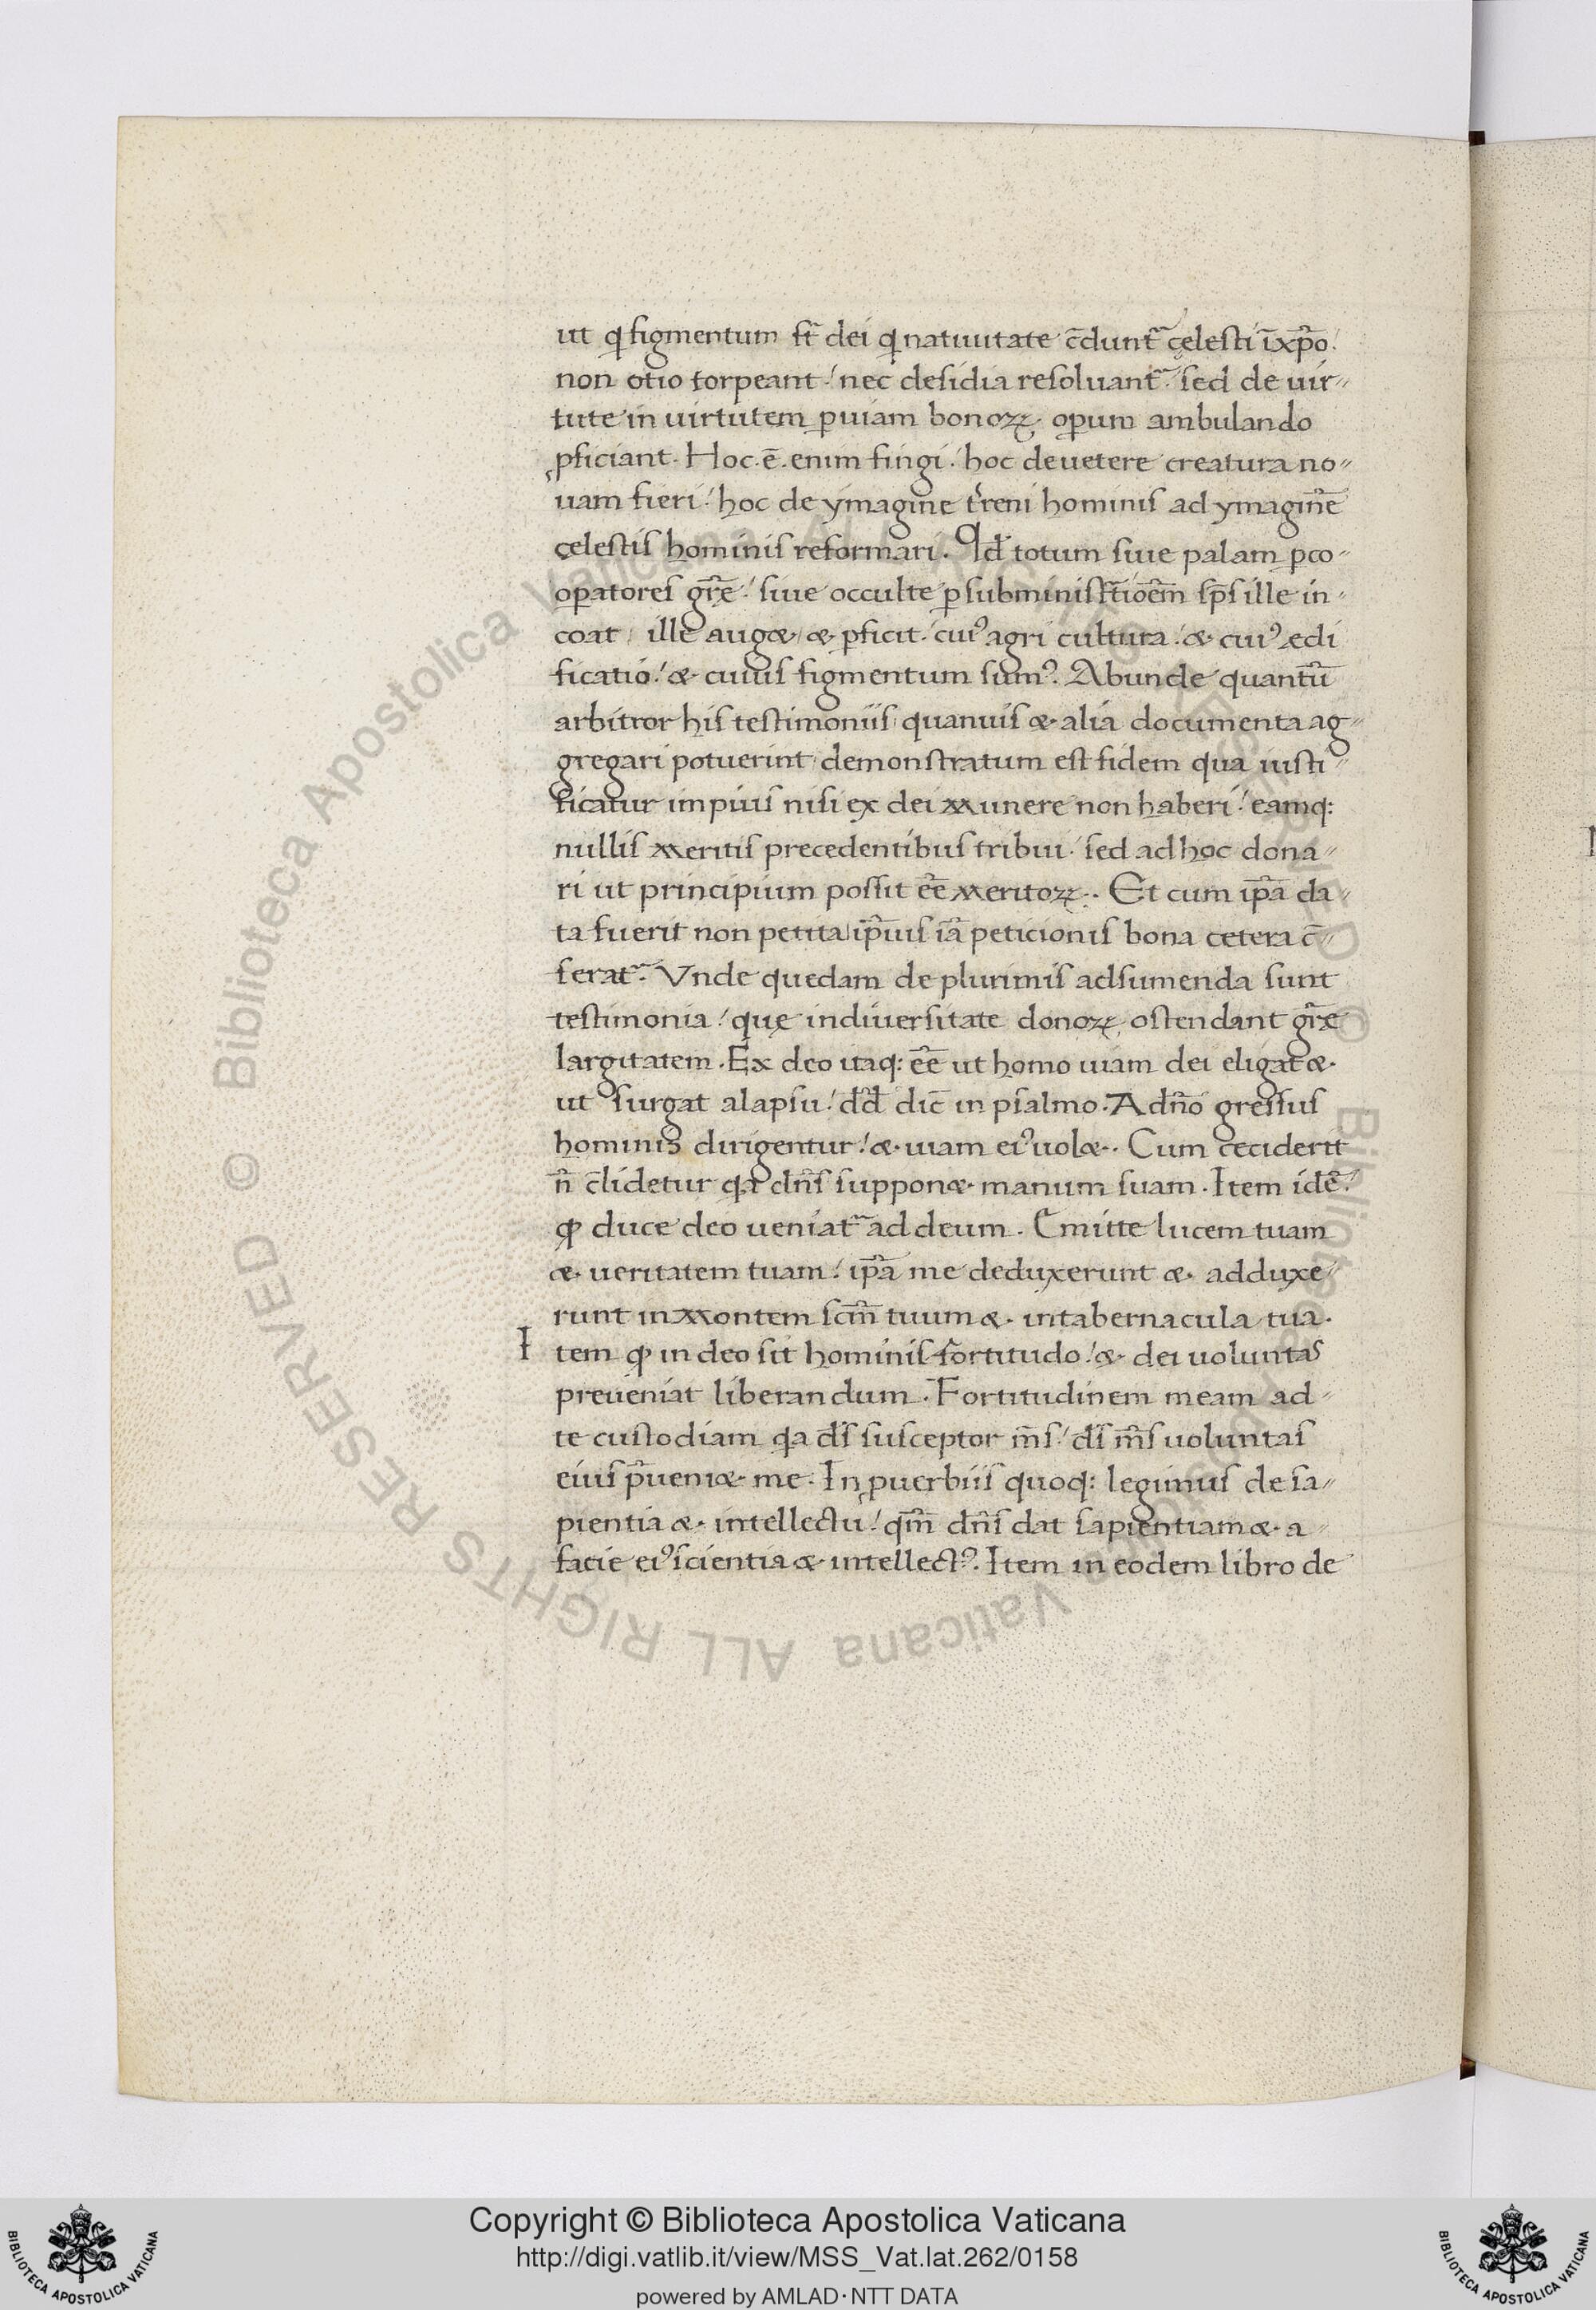 ut qi figmentum st̃ dei qi natiuitate c̄dunt᷑ cęlesti ī xp̄o.
non otio torpeant. nec desidia resoluant᷑. sed de uir-
tute in uirtutem ꝑ uiam bonoꝝ. oꝑum ambulando
ꝓficiant. Hoc .ē. enim fingi. hoc de uetere creatura no-
uam fieri. hoc de ymagine t̓reni hominis ad ymaginē
cęlestis hominis reformari. Id̄ totum siue palam ꝑ co-
oꝑatores gr̄ę. siue occulte ꝑ subministr̄tioēm sp̄s ille in-
coat, ille auget, & ꝑficit. cuiꝰ agri cultura. & cuiꝰ edi
ficatio. & cuius figmentum sumꝰ. Abunde quantū
arbitror his testimoniis quanuis & alia documenta ag-
gregari potuerint demonstratum est fidem qua iusti-
ficatur impius nisi ex dei munere non haberi. eamq:
nullis meritis precedentibus tribui. sed ad hoc dona-
ri ut principium possit ēē meritoꝝ. Et cum ip̄a da-
ta fuerit non petita ip̄ius iā peticionis bona cetera c̄-
ferat᷑. Vnde quedam de plurimis adsumenda sunt
testimonia. quę in diuersitate donoꝝ ostendant gr̄ę
largitatem. Ex deo itaq: ēē ut homo uiam dei eligat &
ut surgat a lapsu. dd̄ dic̄ in psalmo. A dn̄o gressus
hominis dirigentur. & uiam eiꝰ uolet. Cum ceciderit
n̄ c̄lidetur qa dn̄s supponet manum suam. Item idē.
ꝙ duce deo ueniat᷑ ad deum. Emitte lucem tuam
& ueritatem tuam. ip̄a me deduxerunt & adduxe-
runt in montem scm̄ tuum & in tabernacula tua.
Item ꝙ in deo sit hominis fortitudo. & dei uoluntas
preueniat liberandum. Fortitudinem meam ad
te custodiam qa ds̄ susceptor ms̄. ds̄ ms̄ uoluntas
eius p̄ueniet me. In ꝓuerbiis quoq: legimus de sa-
pientia & intellectu. qm̄ dn̄s dat sapientiam & a
facie eiꝰ scientia & intellectꝰ. Item in eodem libro de
Biblioteca Apostolica Vaticana ALL RIGHTS RESERVED ©
Biblioteca Apostolica Vaticana ALL RIGHTS RESERVED ©
Copyright © Biblioteca Apostolica Vaticana
http://digi.vatlib.it/view/MSS_Vat.lat.262/0158
powered by AMLAD·NTT DATA
BIBLIOTECA APOSTOLICA VATICANA
BIBLIOTECA APOSTOLICA VATICANA